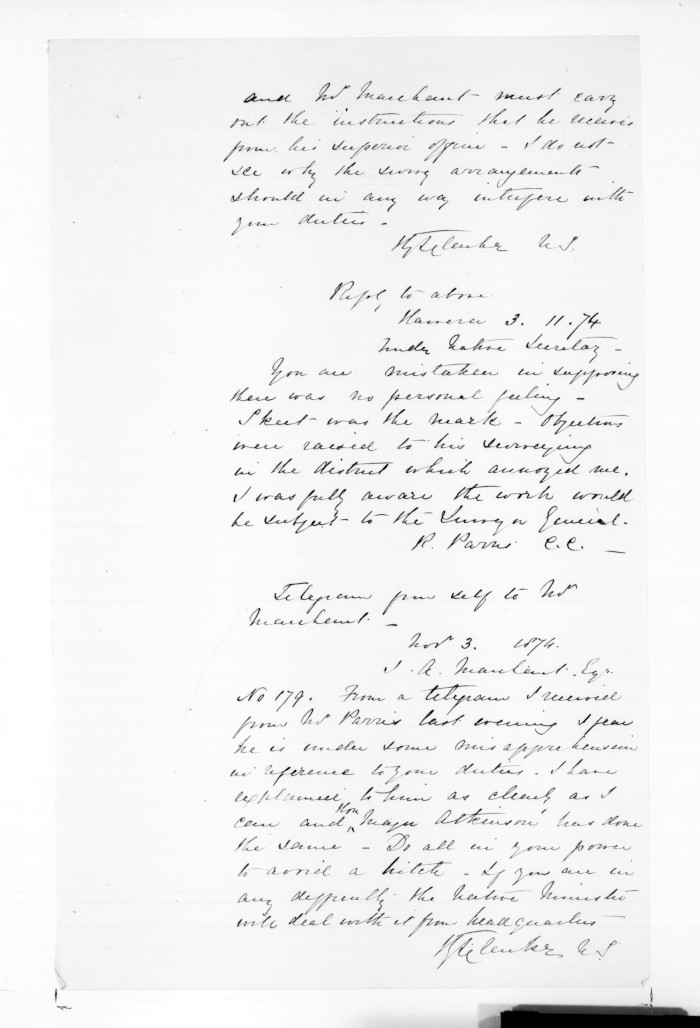 and Mr Marchant must carry
out the instructions that he receives
from his superior officer - I do not
see why the survey arrangements
should in any way interfere with
your duties -
H T Clarke U.S.
Reply to above
Hawera 3. 11. 74
Under Native Secretary -
You are mistaken in supposing
there was no personal feeling -
Skeet was the mark - Objections
were raised to his surveying
in the district which annoyed me.
I was fully aware the work would
be subject to the Surveyor General.
R. Parris C.C. -
Telegram from self to Mr
Marchant. -
Novr 3. 1874.
J. A. Marchant. Esqr.
No 179. From a telegram I received
from Mr Parris last evening I fear
he is under some misapprehension
in reference to your duties. I have
explained to him as clearly as I
can and Hon Major Atkinson has done
the same - Do all in your power
to avoid a hitch - If you are in
any difficulty the Native Minister
will deal with it from headquarters
H T Clarke U.S.